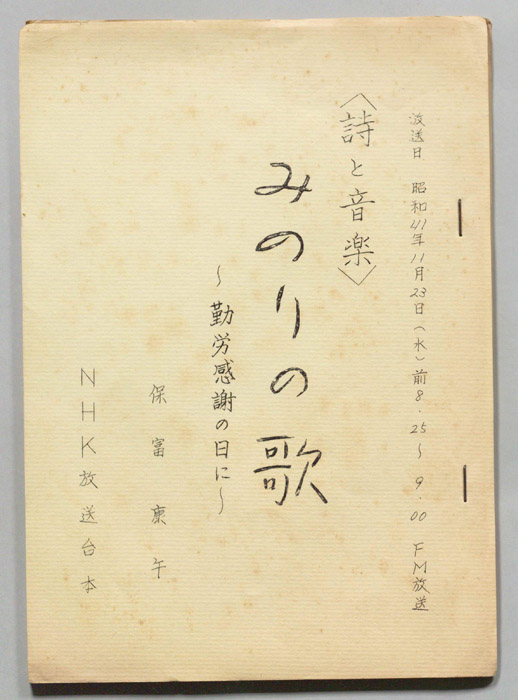 放送日 昭和41年11月23日(水)前8.25～9.00 FM放送
〈詩と音楽〉
みのりの歌
～勤労感謝の日に～
保富庚午
NHK放送台本